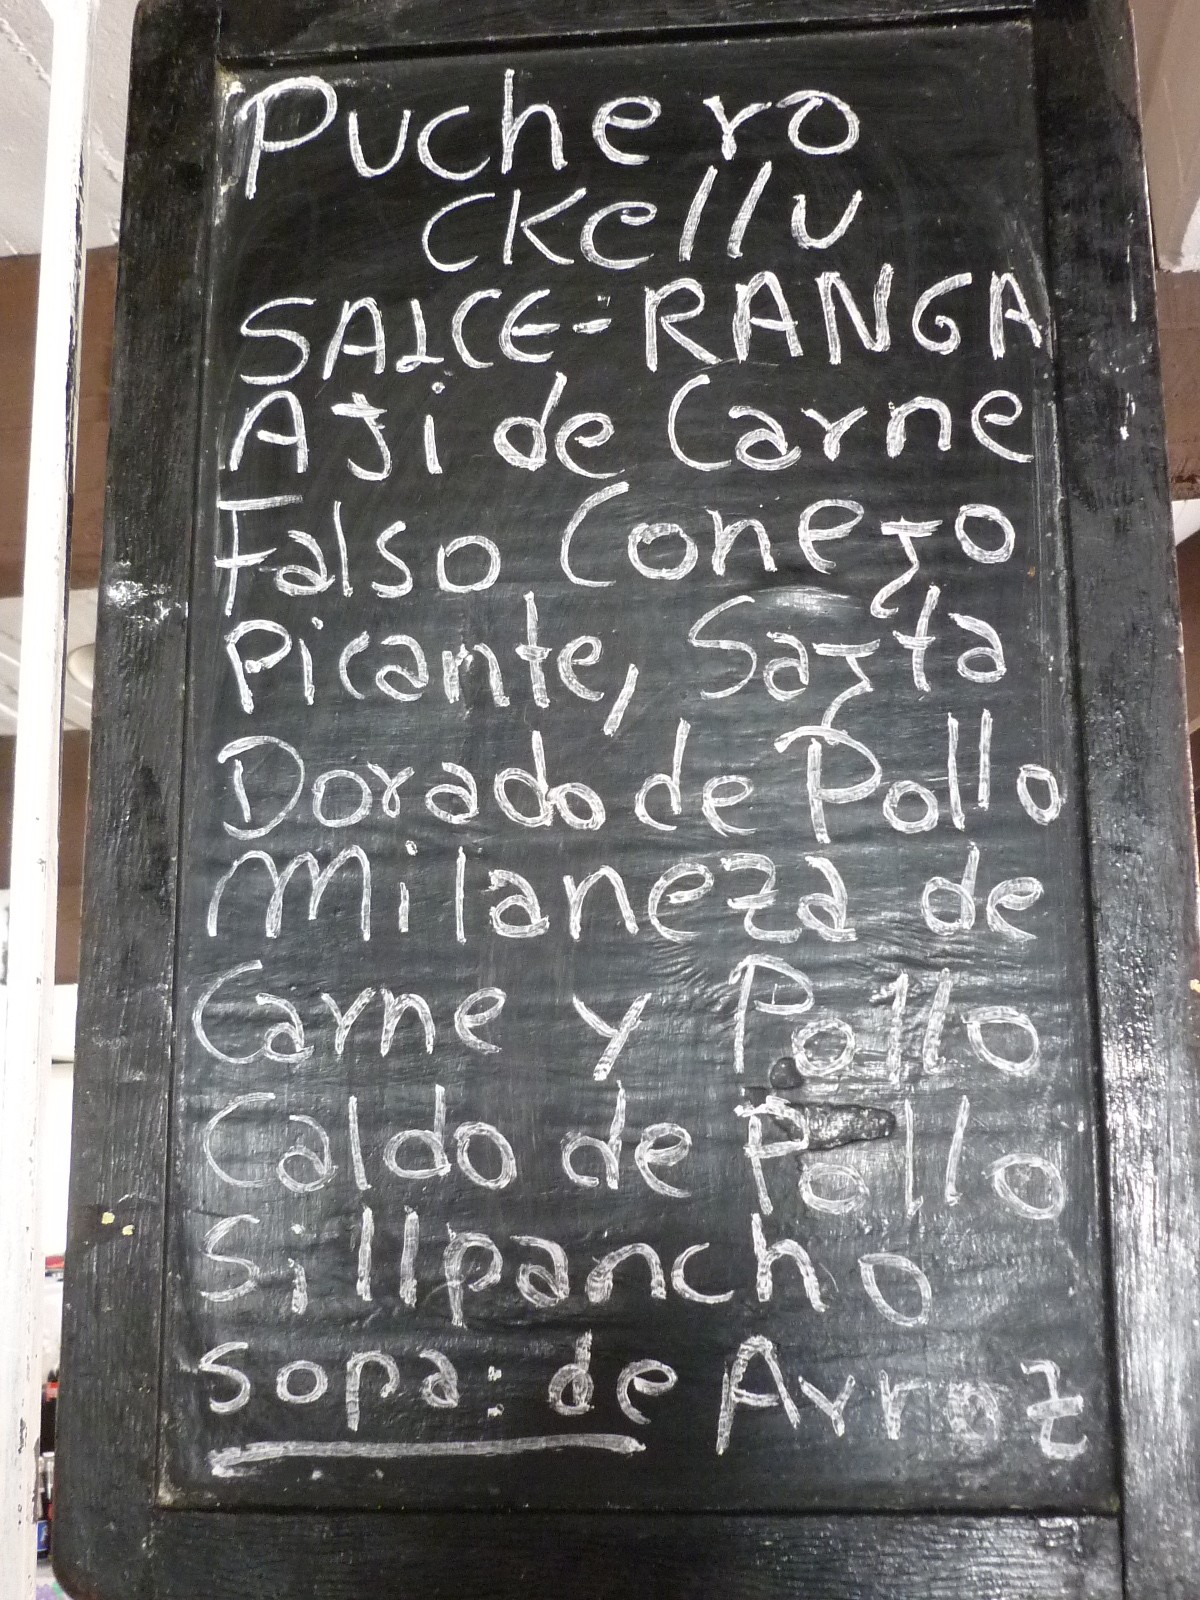 Puchero
Ckellu
SAICE-RANGA
Aji de Carne
Falso Conejo
Picante, Sajta
Dorado de Pollo
Milaneza de
Carne y Pollo
Caldo de Pollo
Sillpancho
Sopa: de Arroz